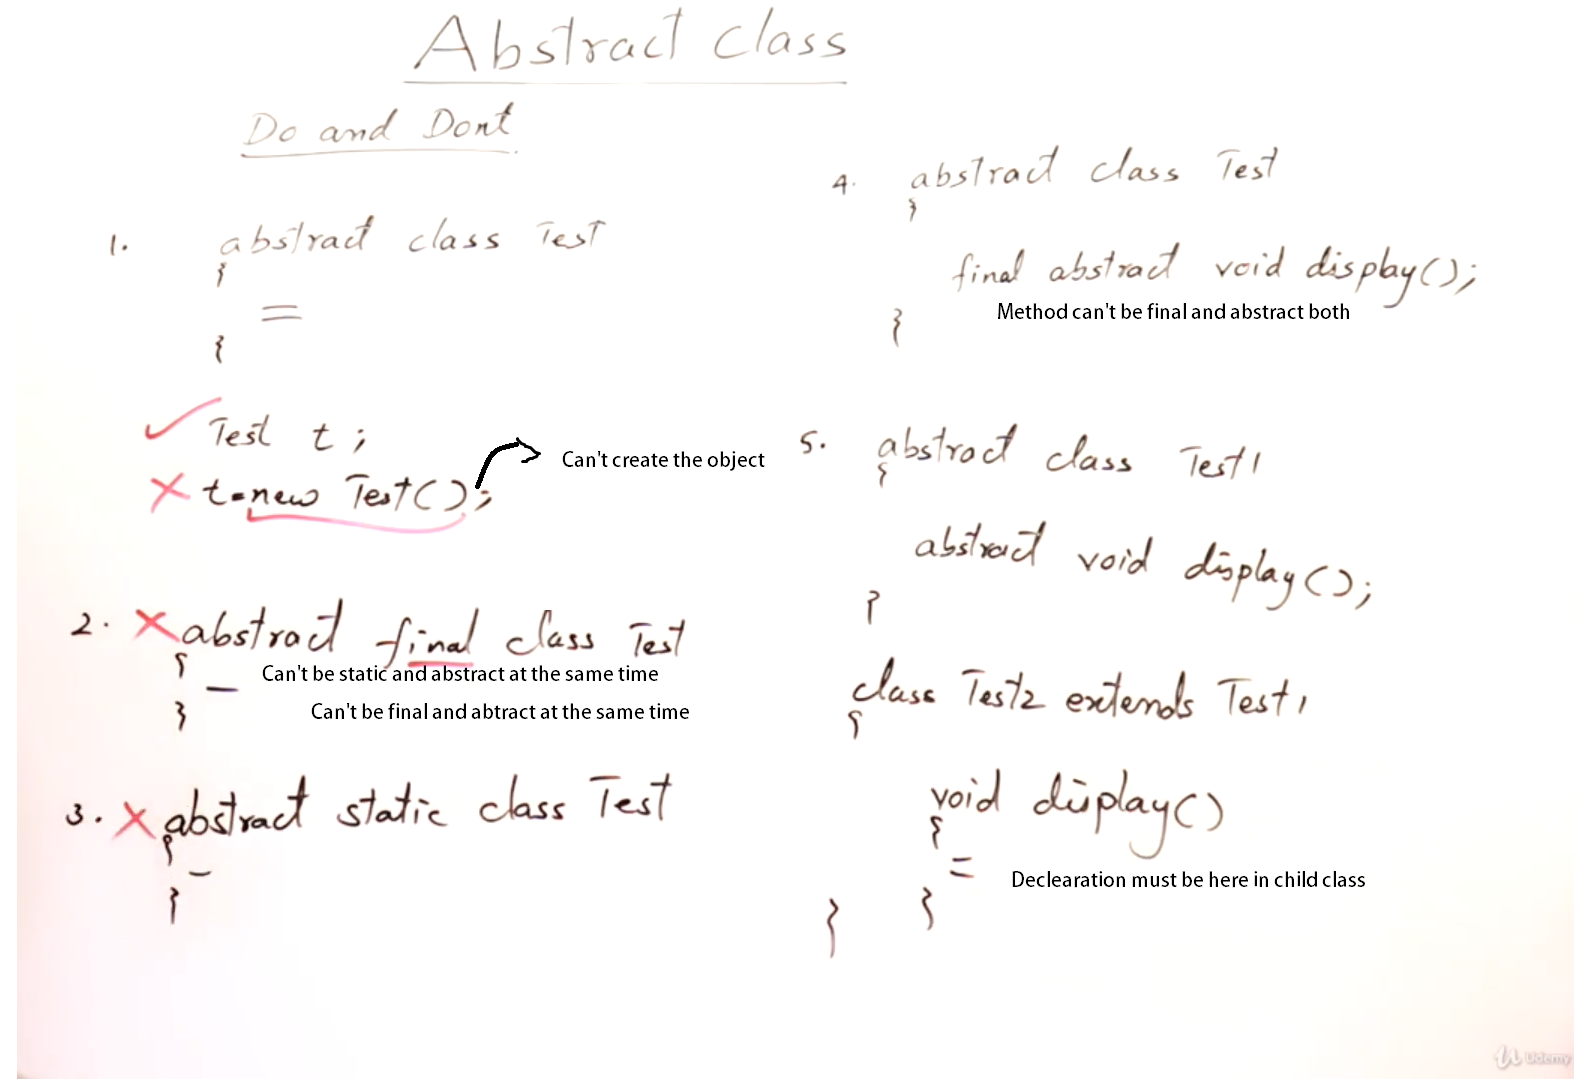 Abstract class
Do and Dont
1. abstract class Test
{
=
}
✓ Test t ;
✗ t=new Test();
Can't create the object
2. ✗ abstract final class Test
{
Can't be static and abstract at the same time
–
Can't be final and abtract at the same time
}
3. ✗ abstract static class Test
{
–
}
4. abstract class Test
{
final abstract void display();
Method can't be final and abstract both
}
5. abstract class Test1
{
abstract void display();
}
class Test2 extends Test1
{
void display()
{
=
Declearation must be here in child class
}
}
Udemy